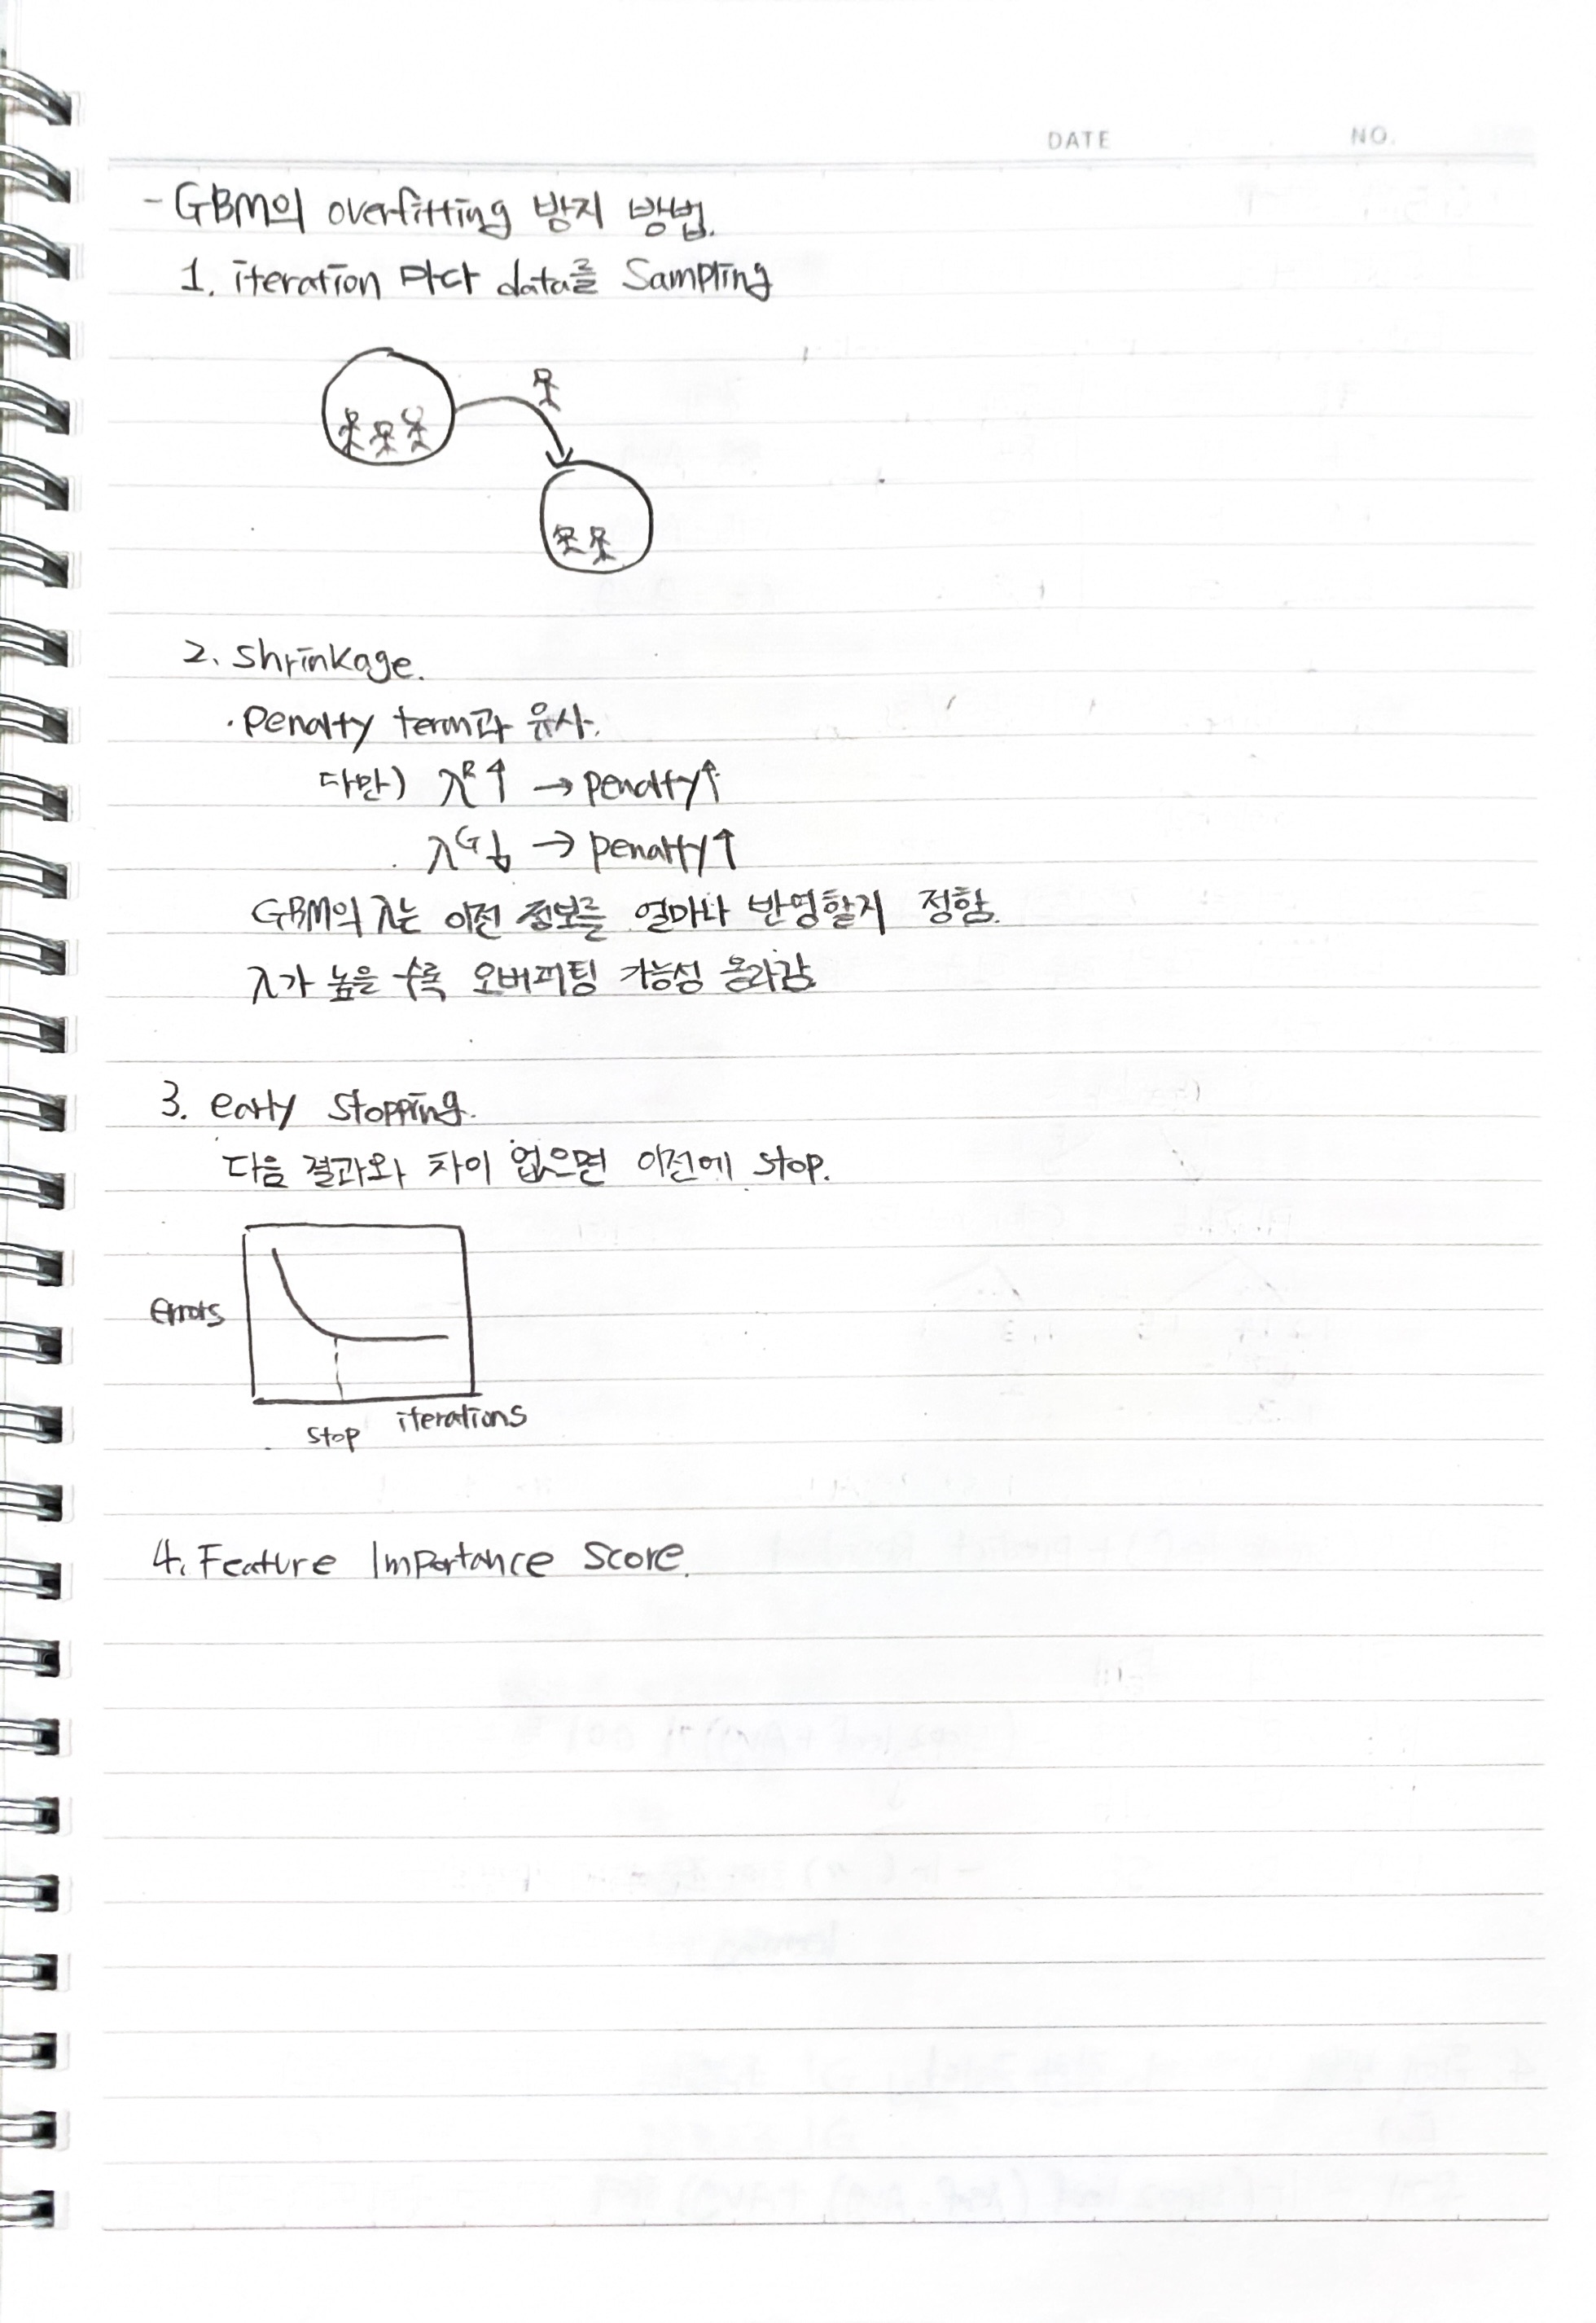 DATE NO.
- GBM의 overfitting 방지 방법.
1. iteration 마다 data를 Sampling
2. Shrinkage.
· Penalty term과 유사.
다만) λᴿ↑ → penalty↑
λᴳ↓ → penalty↑
GBM의 λ는 이전 정보를 얼마나 반영할지 정함.
λ가 높을 수록 오버피팅 가능성 올라감
3. early stopping.
다음 결과와 차이 없으면 이전에 stop.
errors
iterations
stop
4. Feature Importance Score.